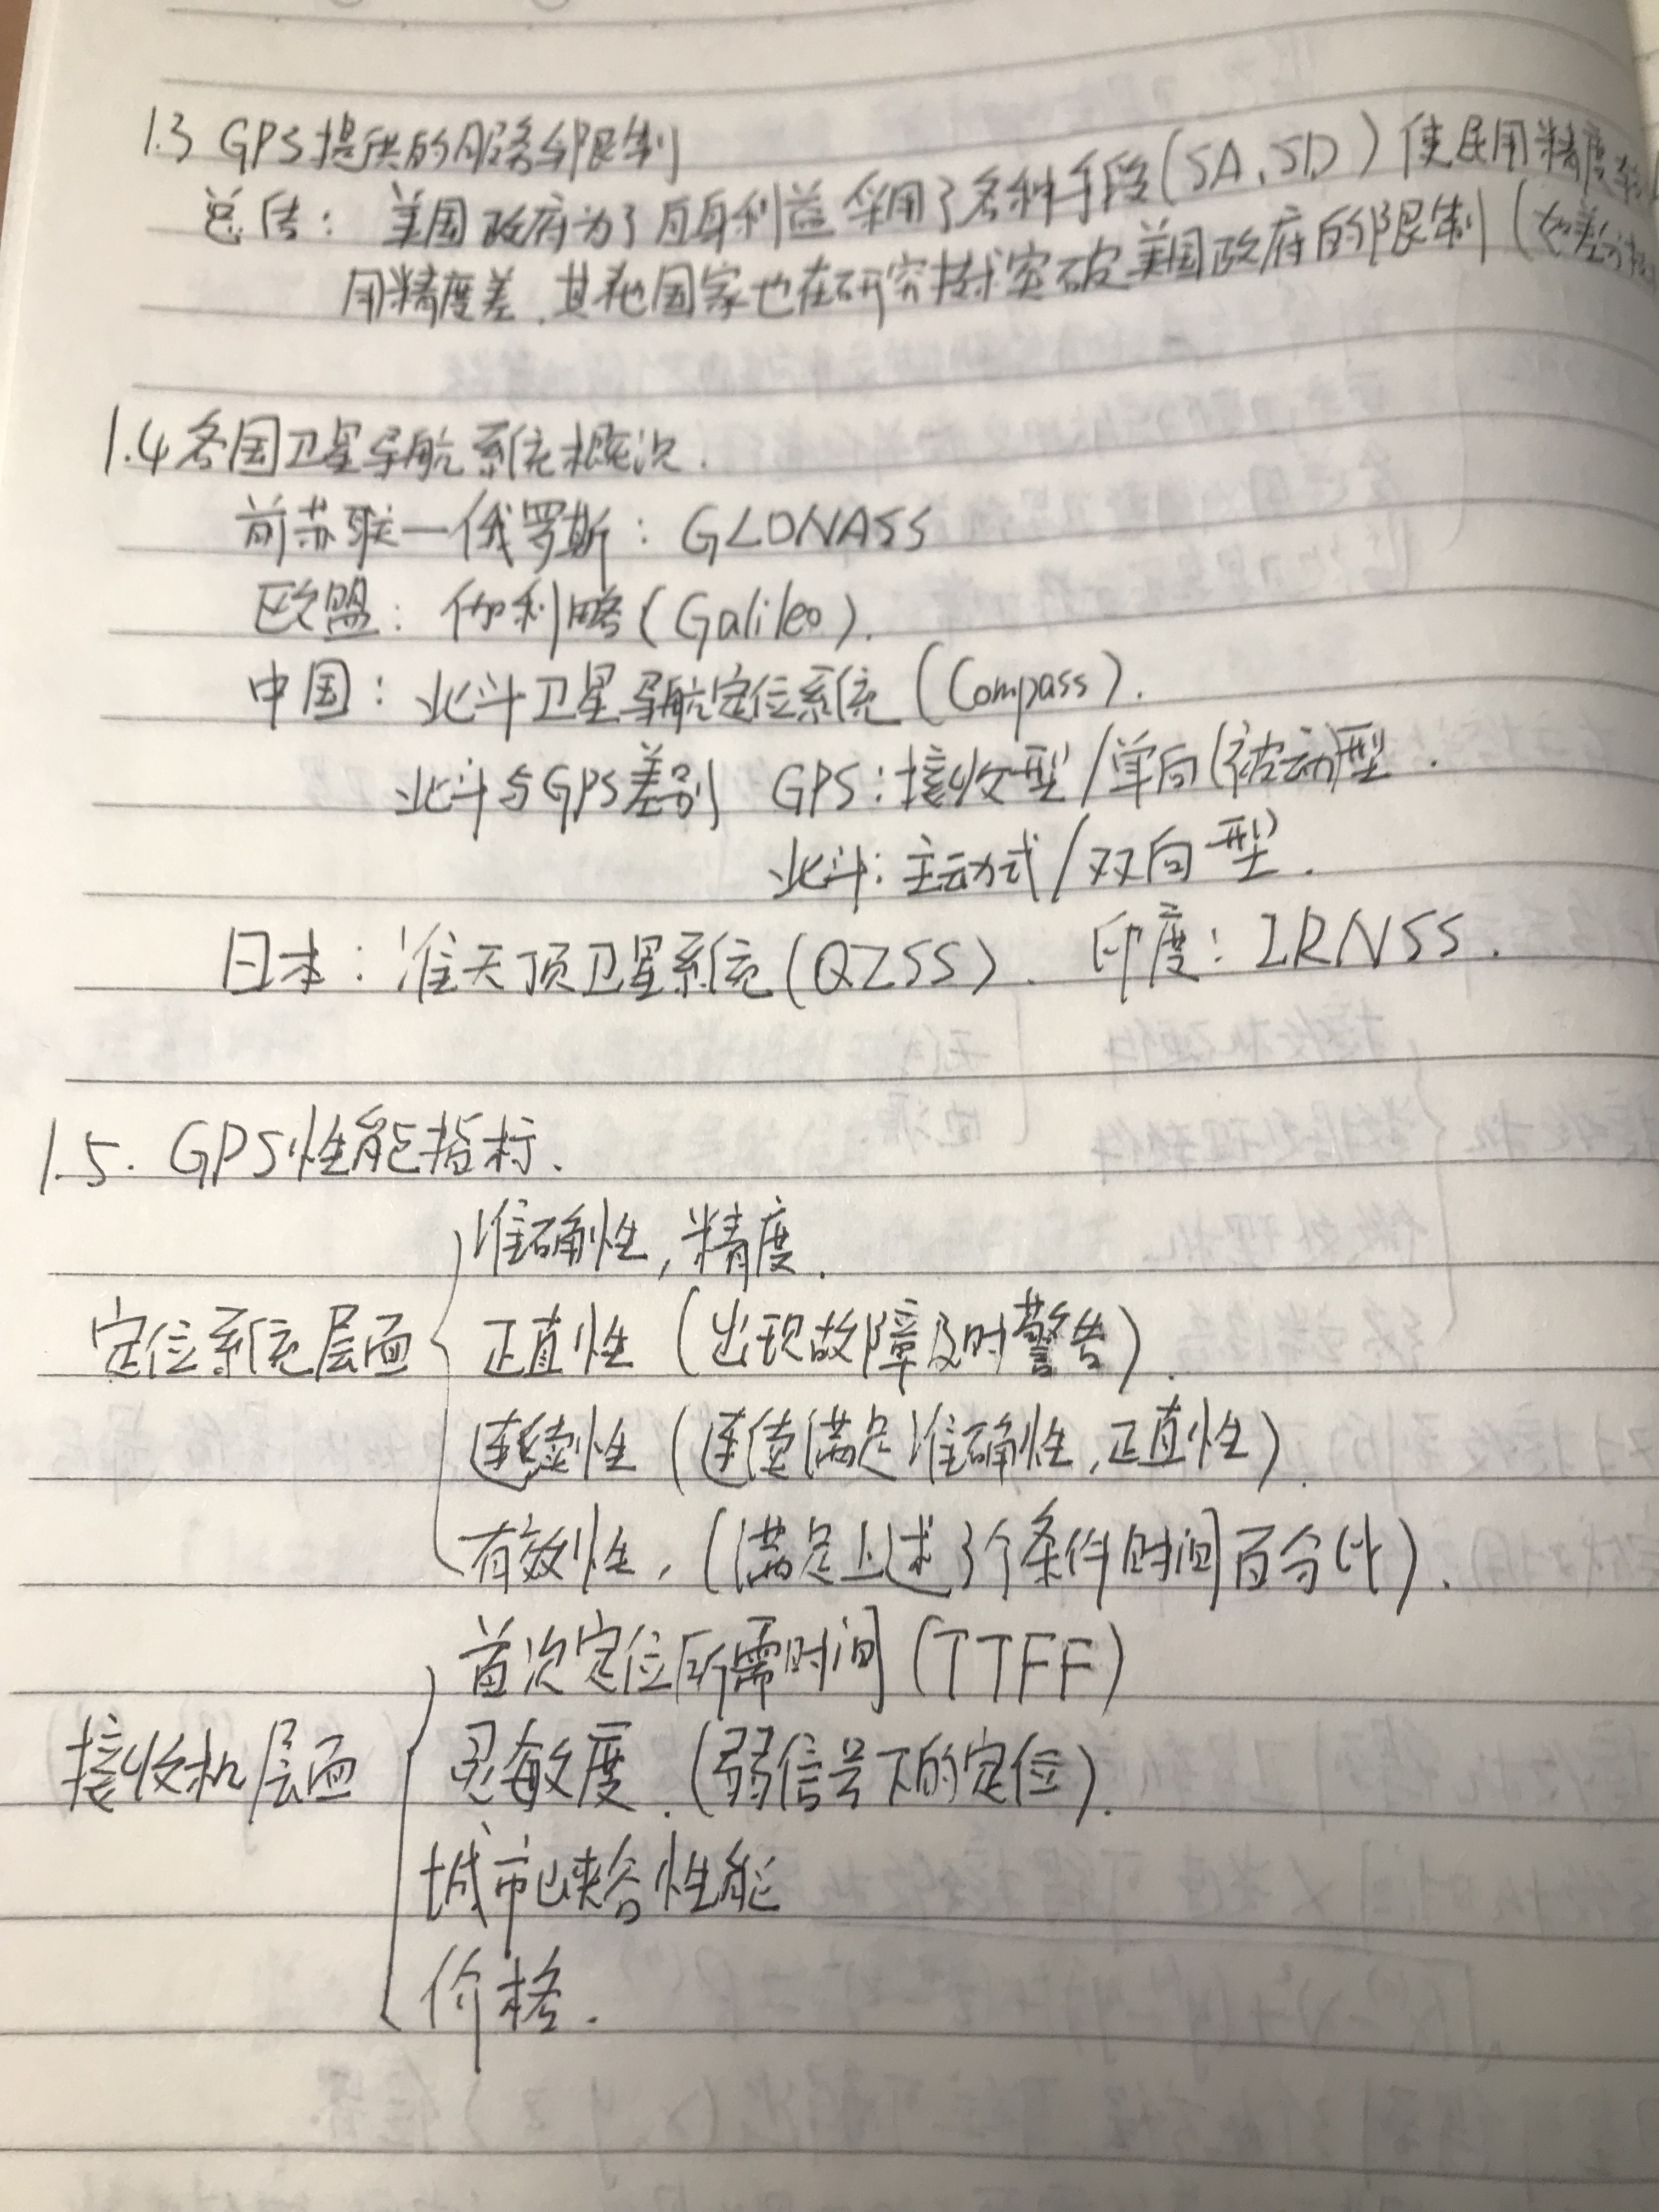 1.3 GPS提供的服务和限制
总结：美国政府为了自身利益采用了各种手段(SA、SD)使民用精度
用精度差.其他国家也在研究技术突破美国政府的限制(如差分
1.4 各国卫星导航系统概况.
前苏联—俄罗斯：GLONASS
欧盟：伽利略(Galileo).
中国：北斗卫星导航定位系统(Compass).
北斗与GPS差别 GPS:接收型/单向(被动)型.
北斗:主动式/双向型.
日本：准天顶卫星系统(QZSS). 印度：IRNSS.
1.5. GPS性能指标.
准确性,精度.
定位系统层面 正直性(出现故障及时警告).
连续性(连续满足准确性,正直性).
有效性,(满足上述3个条件时间百分比).
首次定位所需时间(TTFF)
接收机层面 灵敏度.(弱信号下的定位).
城市峡谷性能
价格.